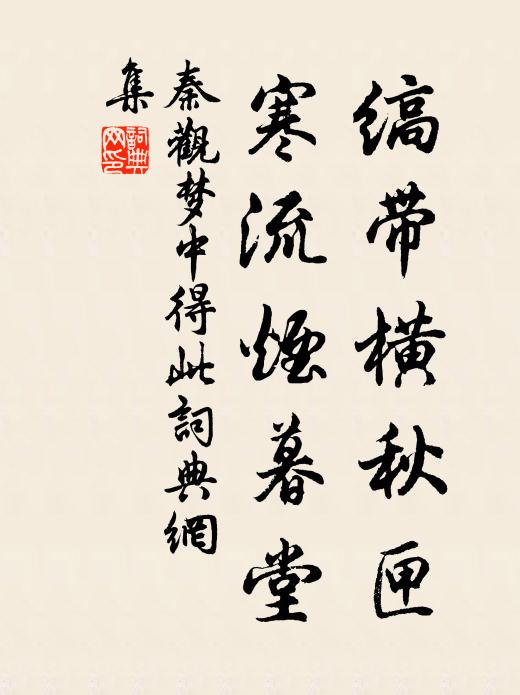 縞帶橫秋匣
寒流煙暮堂
秦觀梦中得此詞典網
集
詞典網印